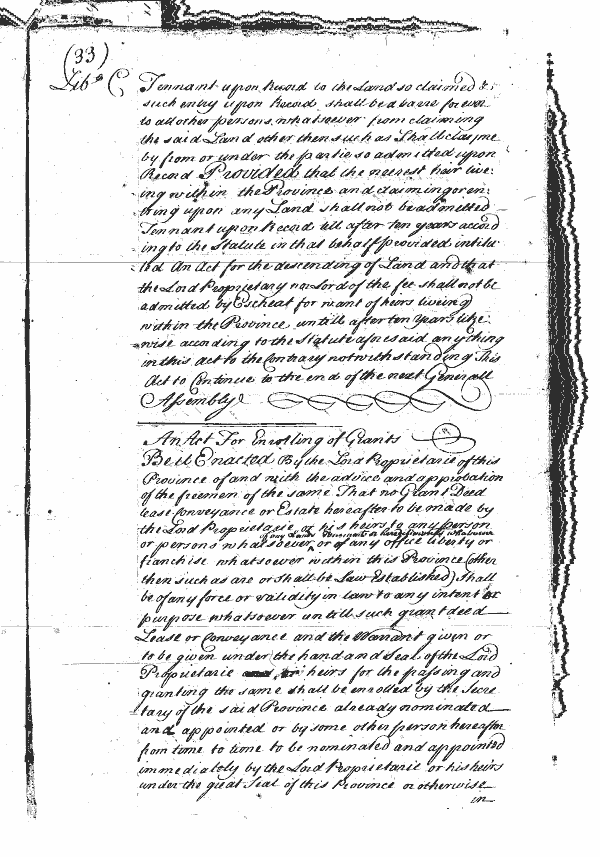 (33)
Lib° C
Tennant upon Record to the Land so claimed &
such entry upon Record shall be a barre forever
to all other persons whatsoever from claiming
the said Land other then such as Shall claime
by from or under the partie so admitted upon
Record Provided that the nearest heir live:
ing within the Province and claiming or en:
tring upon any Land shall not be admitted
Tennant upon Record till after ten years accord
ing to the Statute in that behalf provided intitu
led An Act for the descending of Land and that
the Lord Proprietary nor Lord of the fee shall not be
admitted by Escheat for want of heirs liveing
within the Province untill after ten Years like
wise according to the Statute aforesaid any thing
in this act to the Contrary notwithstanding This
Act to Continue to the end of the next Generall
Assembly
An Act For Enrolling of Grants
Be it Enacted By the Lord Proprietarie of this
Province of and with the advice and approbation
of the freemen of the same That no Grant Deed
lease conveyance or Estate hereafter to be made by
the Lord Proprietarie or his heirs to any person
of any Lands Tenements or hereditaments whatsoever
or persons whatsoever or of any office liberty or
franchise whatsoever within this Province (other
then such as are or shall be Law Established) shall
be of any force or validity in law to any intent or
purpose whatsoever untill such grant deed
Lease or Conveyance and the Warrant given or
to be given under the hand and Seal of the Lord
Proprietarie or heirs for the passing and
granting the same shall be enrolled by the Secre
tary of the said Province already nominated
and appointed or by some other person hereafter
from time to time to be nominated and appointed
immediately by the Lord Proprietarie or his heirs
under the great Seal of this Province or otherwise
in